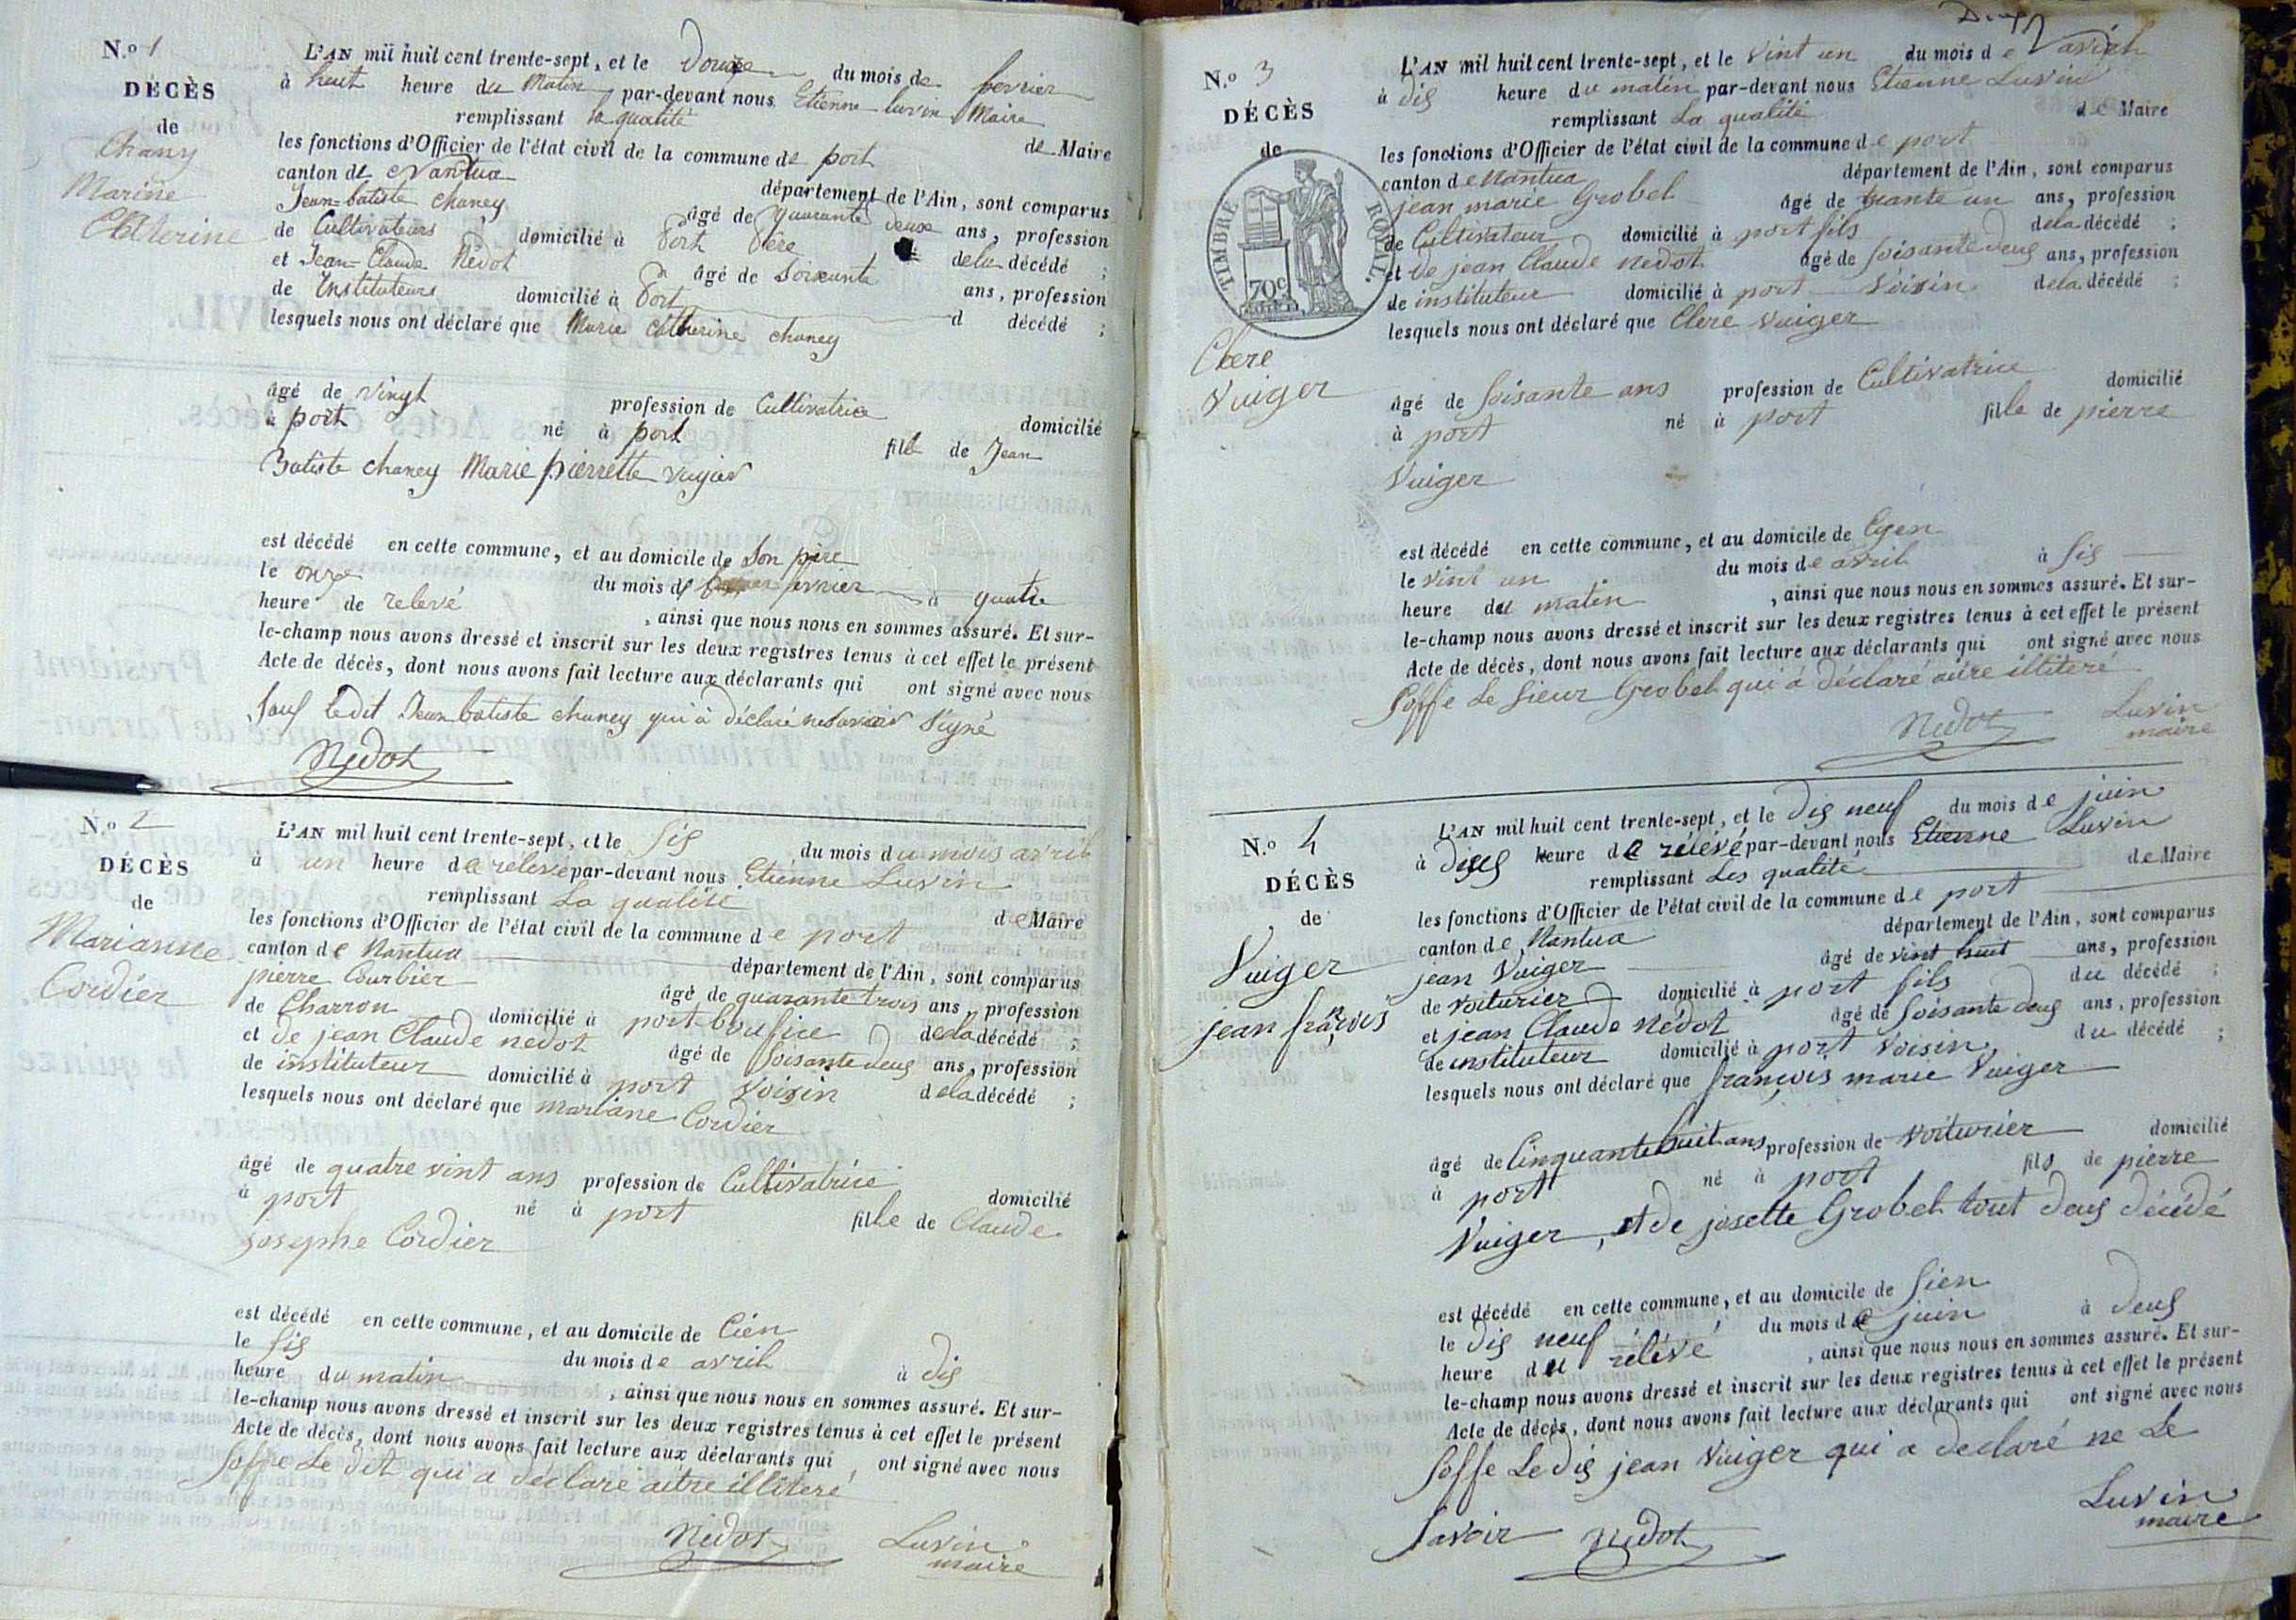 N.o 1
DÉCÈS
de
Chany
Marine
Catherine
L'AN mil huit cent trente-sept, et le Douze du mois de fevrier
à huit heure du Matin par-devant nous Etienne Luvin Maire
remplissant la qualité de Maire
les fonctions d'Officier de l'état civil de la commune de port
canton de Nantua département de l'Ain, sont comparus
Jean-batiste chaney âgé de quarante deux ans, profession
de Cultivateurs domicilié à Port Père de la décédé ;
et Jean-Claude Nédot âgé de Soixante ans, profession
de Instituteurs domicilié à Port d décédé ;
lesquels nous ont déclaré que Marie Catherine chaney
âgé de vingt profession de Cultivatrice domicilié
à port né à port fille de Jean
Batiste chaney Marie pierrette vuijer
est décédé en cette commune, et au domicile de Son père
le onze du mois de fevrier à quatre
heure de relevé , ainsi que nous nous en sommes assuré. Et sur-
le-champ nous avons dressé et inscrit sur les deux registres tenus à cet effet le présent
Acte de décès, dont nous avons fait lecture aux déclarants qui ont signé avec nous
Sauf ledit Jean batiste chaney qui à déclaré ne savoir Signé
Nedot
N.o 2
DÉCÈS
de
Marianne
Cordier
L'AN mil huit cent trente-sept, et le sis du mois du mois avril
à un heure de rélevé par-devant nous Etienne Luvin
remplissant La qualité de Maire
les fonctions d'Officier de l'état civil de la commune de port
canton de Nantua département de l'Ain, sont comparus
pierre Courbier âgé de quarante trois ans, profession
de Charron domicilié à port boufice dela décédé ;
et de jean Claude nedot âgé de soisante deus ans, profession
de instituteur domicilié à port voisin dela décédé ;
lesquels nous ont déclaré que mariane Cordier
âgé de quatre vint ans profession de Cultivatrice domicilié
à port né à port fille de Claude
josephe Cordier
est décédé en cette commune, et au domicile de Cien
le sis du mois de avril à dis
heure du matin , ainsi que nous nous en sommes assuré. Et sur-
le-champ nous avons dressé et inscrit sur les deux registres tenus à cet effet le présent
Acte de décès, dont nous avons fait lecture aux déclarants qui ont signé avec nous
soffe Le dit qui a déclare aitre illiteré
Nedot Luvin
maire
N.o 3
DÉCÈS
de
TIMBRE ROYAL.
70c
Clere
Vuiger
L'AN mil huit cent trente-sept, et le vint un du mois de avril
à dis heure du matin par-devant nous Etienne Luvin
remplissant La qualité de Maire
les fonctions d'Officier de l'état civil de la commune de port
canton de Nantua département de l'Ain, sont comparus
jean marie Grobel âgé de trante un ans, profession
de Cultivateur domicilié à port fils dela décédé ;
et de jean Claude nedot âgé de soisante deus ans, profession
de instituteur domicilié à port voisin dela décédé ;
lesquels nous ont déclaré que Clere vuiger
âgé de soisante ans profession de Cultivatrice domicilié
à port né à port fille de pierre
Vuiger
est décédé en cette commune, et au domicile de
le vint un du mois de avril à sis
heure du matin , ainsi que nous nous en sommes assuré. Et sur-
le-champ nous avons dressé et inscrit sur les deux registres tenus à cet effet le présent
Acte de décès, dont nous avons fait lecture aux déclarants qui ont signé avec nous
soffe Le sieur Grobel qui à déclaré aitre illiteré
Nedot Luvin
maire
N.o 4
DÉCÈS
de
Vuiger
jean françois
L'AN mil huit cent trente-sept, et le dis neuf du mois de juin
à heure de rélevé par-devant nous Etienne Luvin
remplissant Les qualité de Maire
les fonctions d'Officier de l'état civil de la commune de port
canton de Nantua département de l'Ain, sont comparus
jean Vuiger âgé de vint huit ans, profession
de voiturier domicilié à port fils du décédé ;
et jean Claude nédot âgé de soisante deus ans, profession
de instituteur domicilié à port voisin du décédé ;
lesquels nous ont déclaré que françois marie Vuiger
âgé de Cinquante huit ans profession de voiturier domicilié
à port né à port fils de pierre
Vuiger, et de josette Grobel tout deus décédé
est décédé en cette commune, et au domicile de sien
le dis neuf du mois de juin à deus
heure du rélevé , ainsi que nous nous en sommes assuré. Et sur-
le-champ nous avons dressé et inscrit sur les deux registres tenus à cet effet le présent
Acte de décès, dont nous avons fait lecture aux déclarants qui ont signé avec nous
soffe Le dis jean Vuiger qui a declaré ne Le
savoir Nedot Luvin
maire